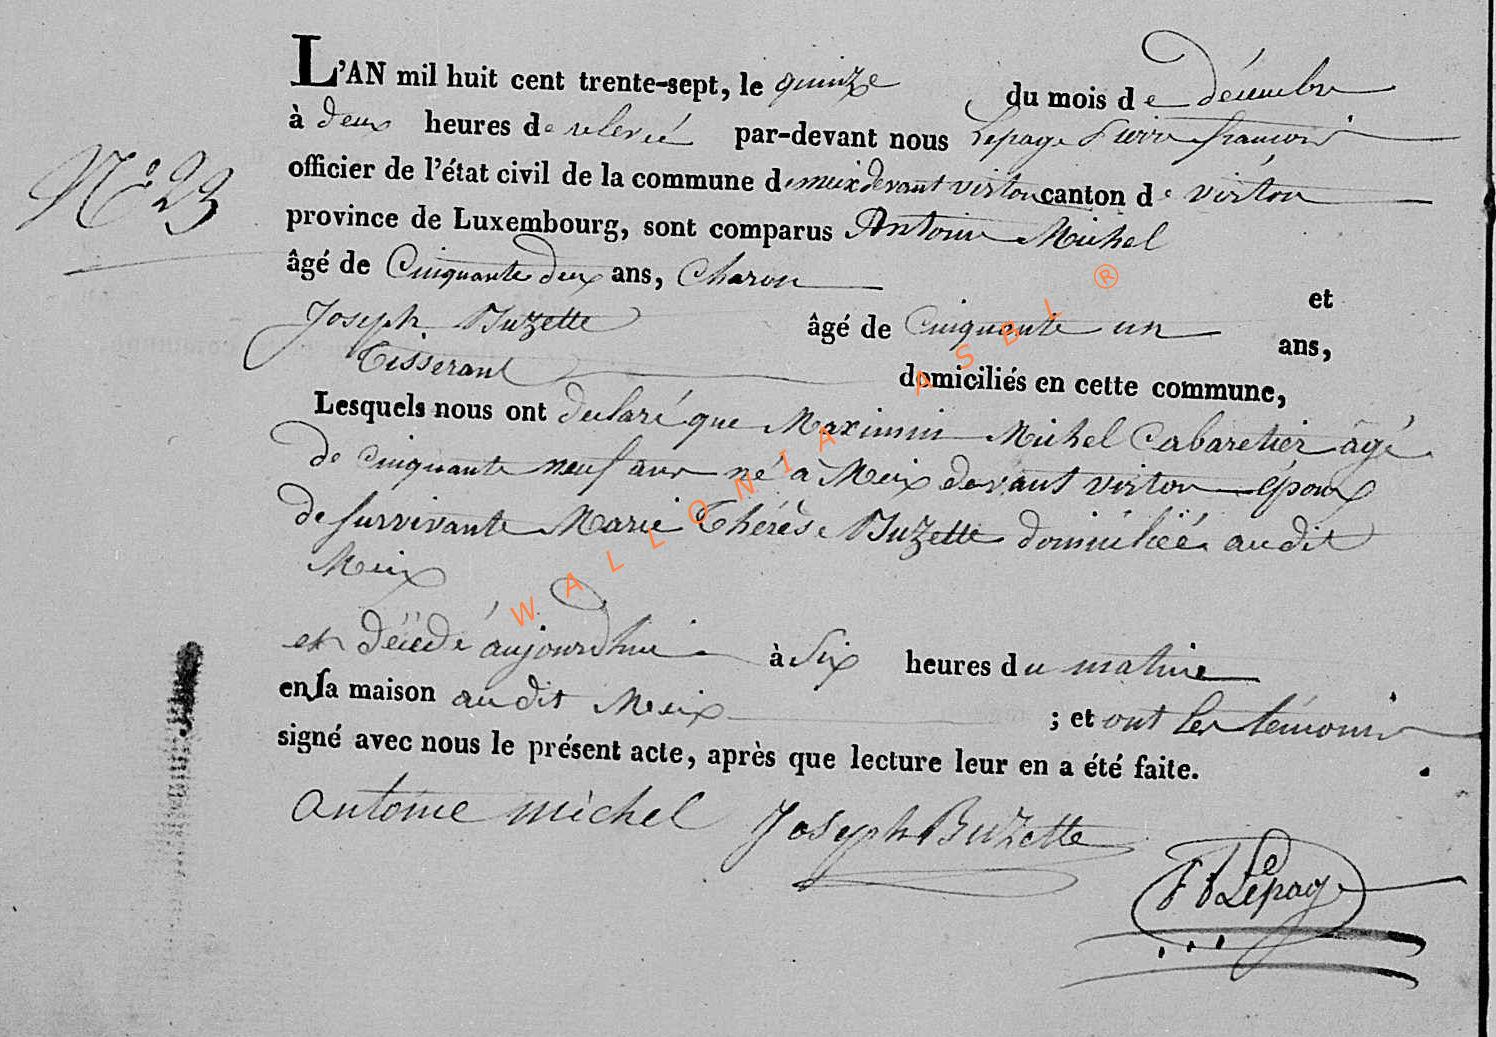 L'AN mil huit cent trente-sept, le quinze du mois de décembre
à deux heures de relevée par-devant nous Lepage Pierre françois
Nº 23
officier de l'état civil de la commune de meix devant virton canton de virton
province de Luxembourg, sont comparus Antoine Michel
âgé de Cinquante deux ans, Charon et
Joseph Buzette âgé de Cinquante un ans,
Tisserant domiciliés en cette commune,
Lesquels nous ont déclaré que Maximin Michel Cabaretier âgé
de cinquante neuf ans né à Meix devant virton époux
de survivante Marie Thérèse Buzette domiciliée audit
Meix
est décédé aujourdhui à Six heures du matine
en sa maison audit Meix ; et ont les témoins
signé avec nous le présent acte, après que lecture leur en a été faite.
antoine michel Joseph Buzette
Lepage
WALLONIA ASBL ®